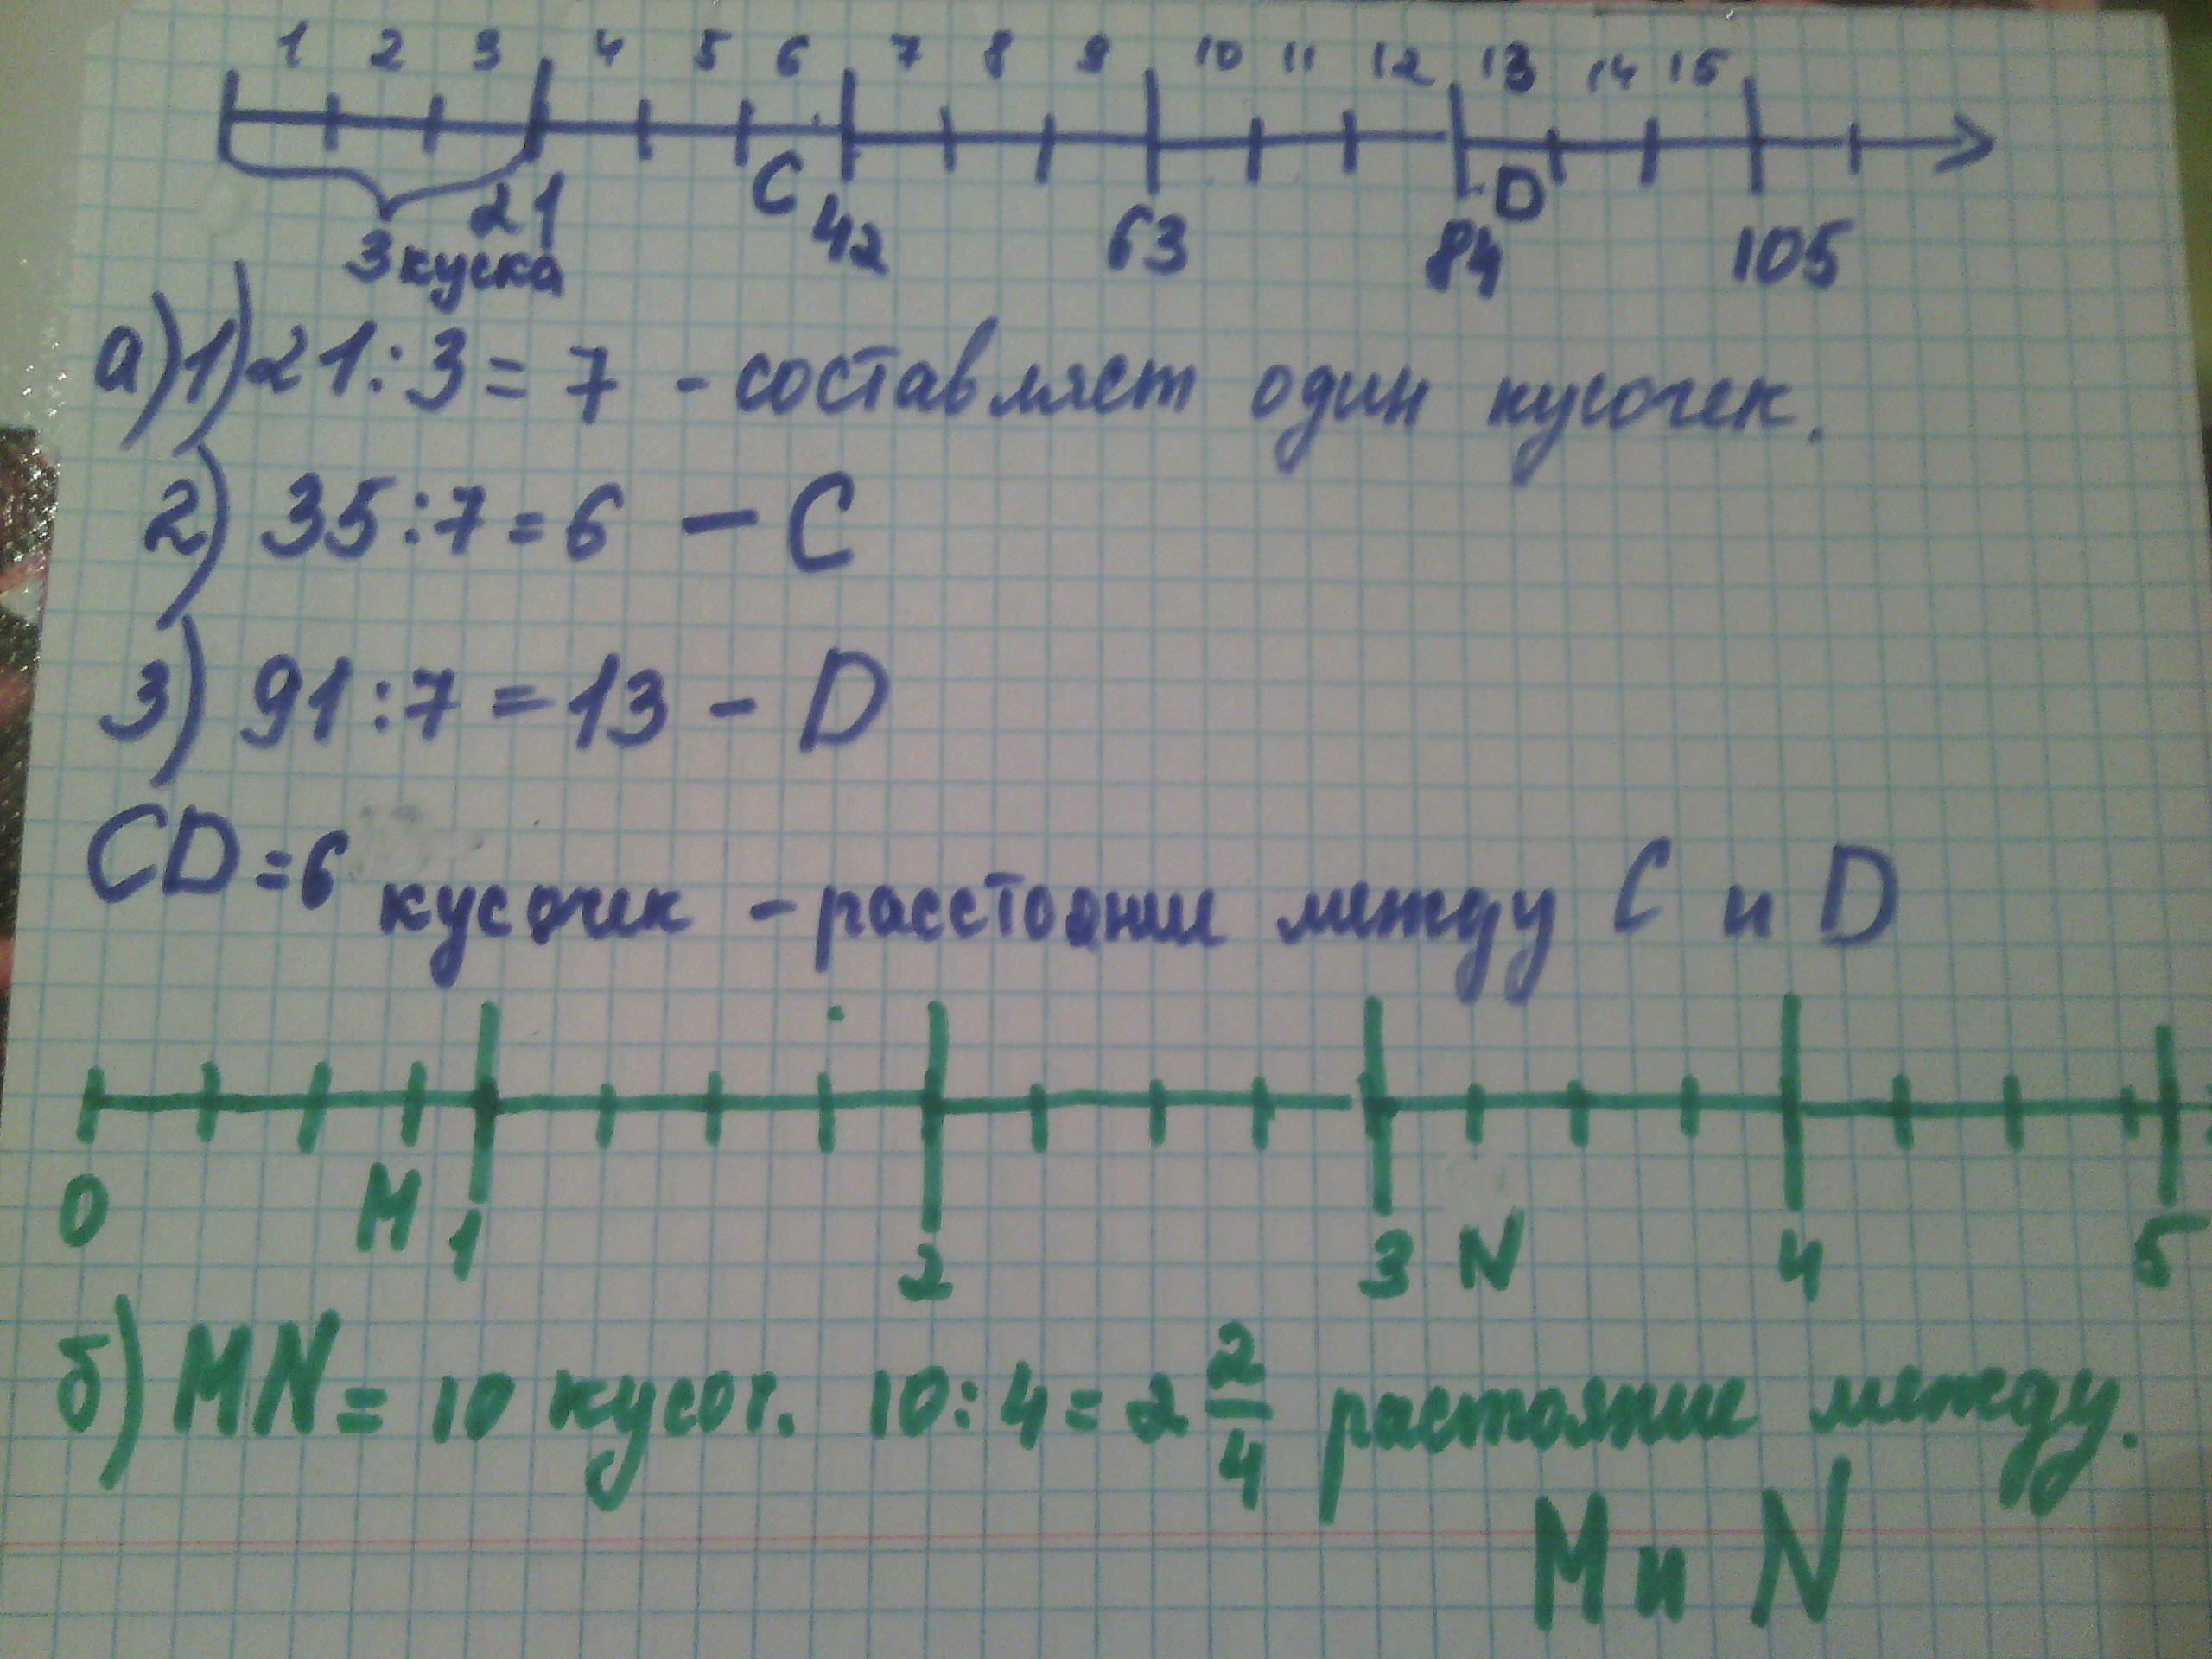 1 2 3 4 5 6 7 8 9 10 11 12 13 14 15
21 C 42 63 84 D 105
3 куска
а) 1) 21:3 = 7 - составляет один кусочек.
2) 35:7 = 6 - C
3) 91:7 = 13 - D
CD = 6 кусочек - расстояние между C и D
0 M 1 2 3 N 4 5
б) MN = 10 кусоч. 10:4 = 2 2/4 растояние между.
M и N